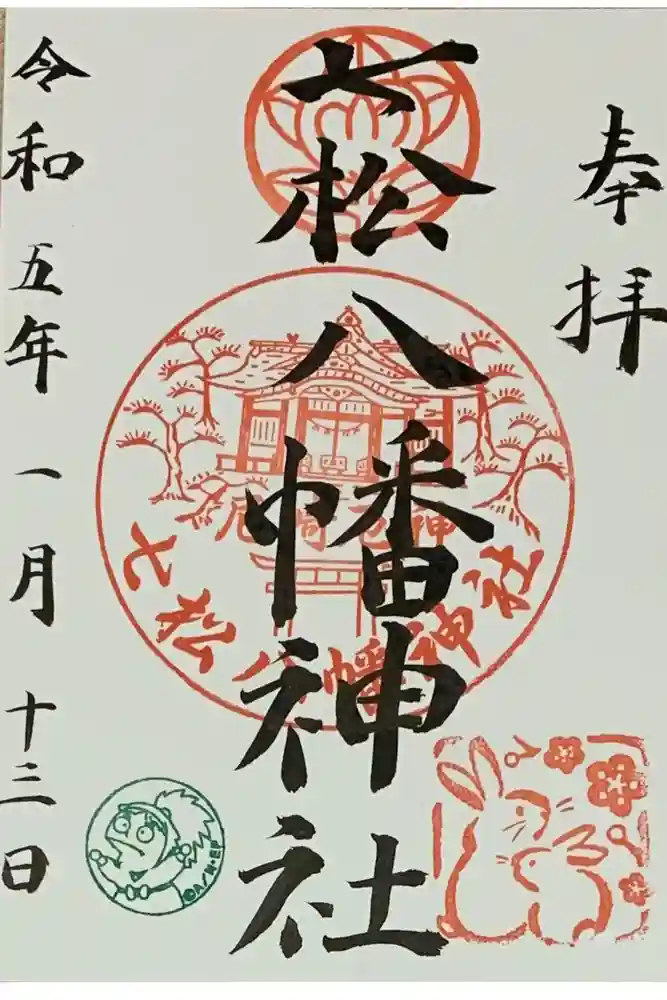 奉拝
七松八幡神社
尼崎厄神
七松八幡神社
令和五年一月十三日